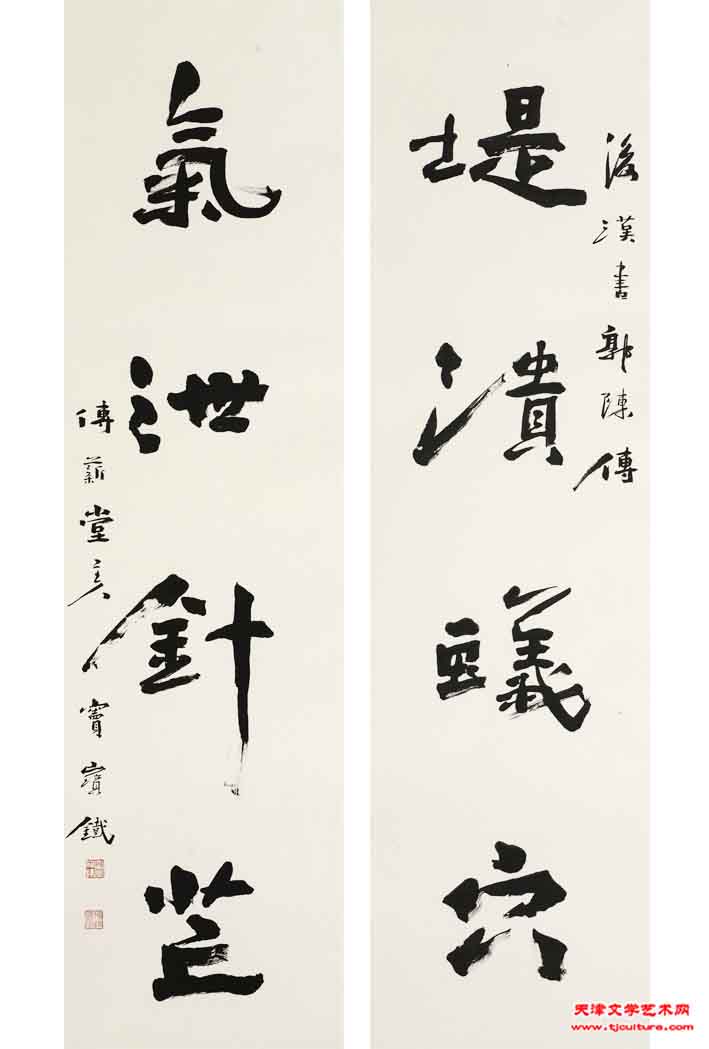 後漢書郭陳傳
堤潰蟻穴
氣泄針芒
傳薪堂主人竇寶鐵
天津文学艺术网
www.tjculture.com